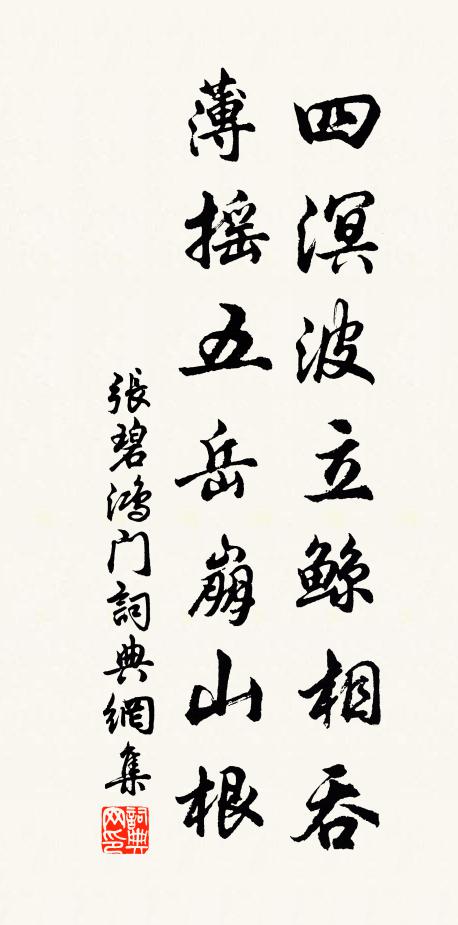 四溟波立鲸相吞
薄摇五岳崩山根
張碧鴻门詞典網集
詞典网印